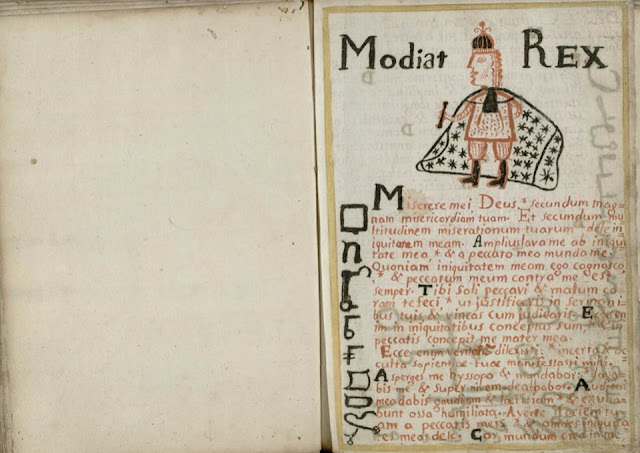 Modiat REX
Miserere mei Deus * secundum mag-
nam misericordiam tuam. Et secundum mu
ltitudinem miserationum tuarum * dele in
iquitatem meam. Amplius lava me ab iniqui
tate mea * & a peccato meo munda me
Quoniam iniquitatem meam ego cognosco
* & peccatum meum contra me est
semper. Tibi soli peccavi & malum co
ram te feci * ut justificeris in sermoni
bus tuis, & vincas cum judicaris. Ecce en
im in iniquitatibus conceptus sum, * & in
peccatis concepit me mater mea.
Ecce enim dilexisti * incerta & oc
culta sapientiae tuae manifestasti mihi.
Asperges me hyssopo & mundabor
bis me & super nivem dealbabor. Auditui
meo dabis gaudium & laetitiam * & exulta
bunt ossa humiliata. Averte faciem tu
am a peccatis meis * & omnes iniquita
tes meas dele. Cor mundum crea in me